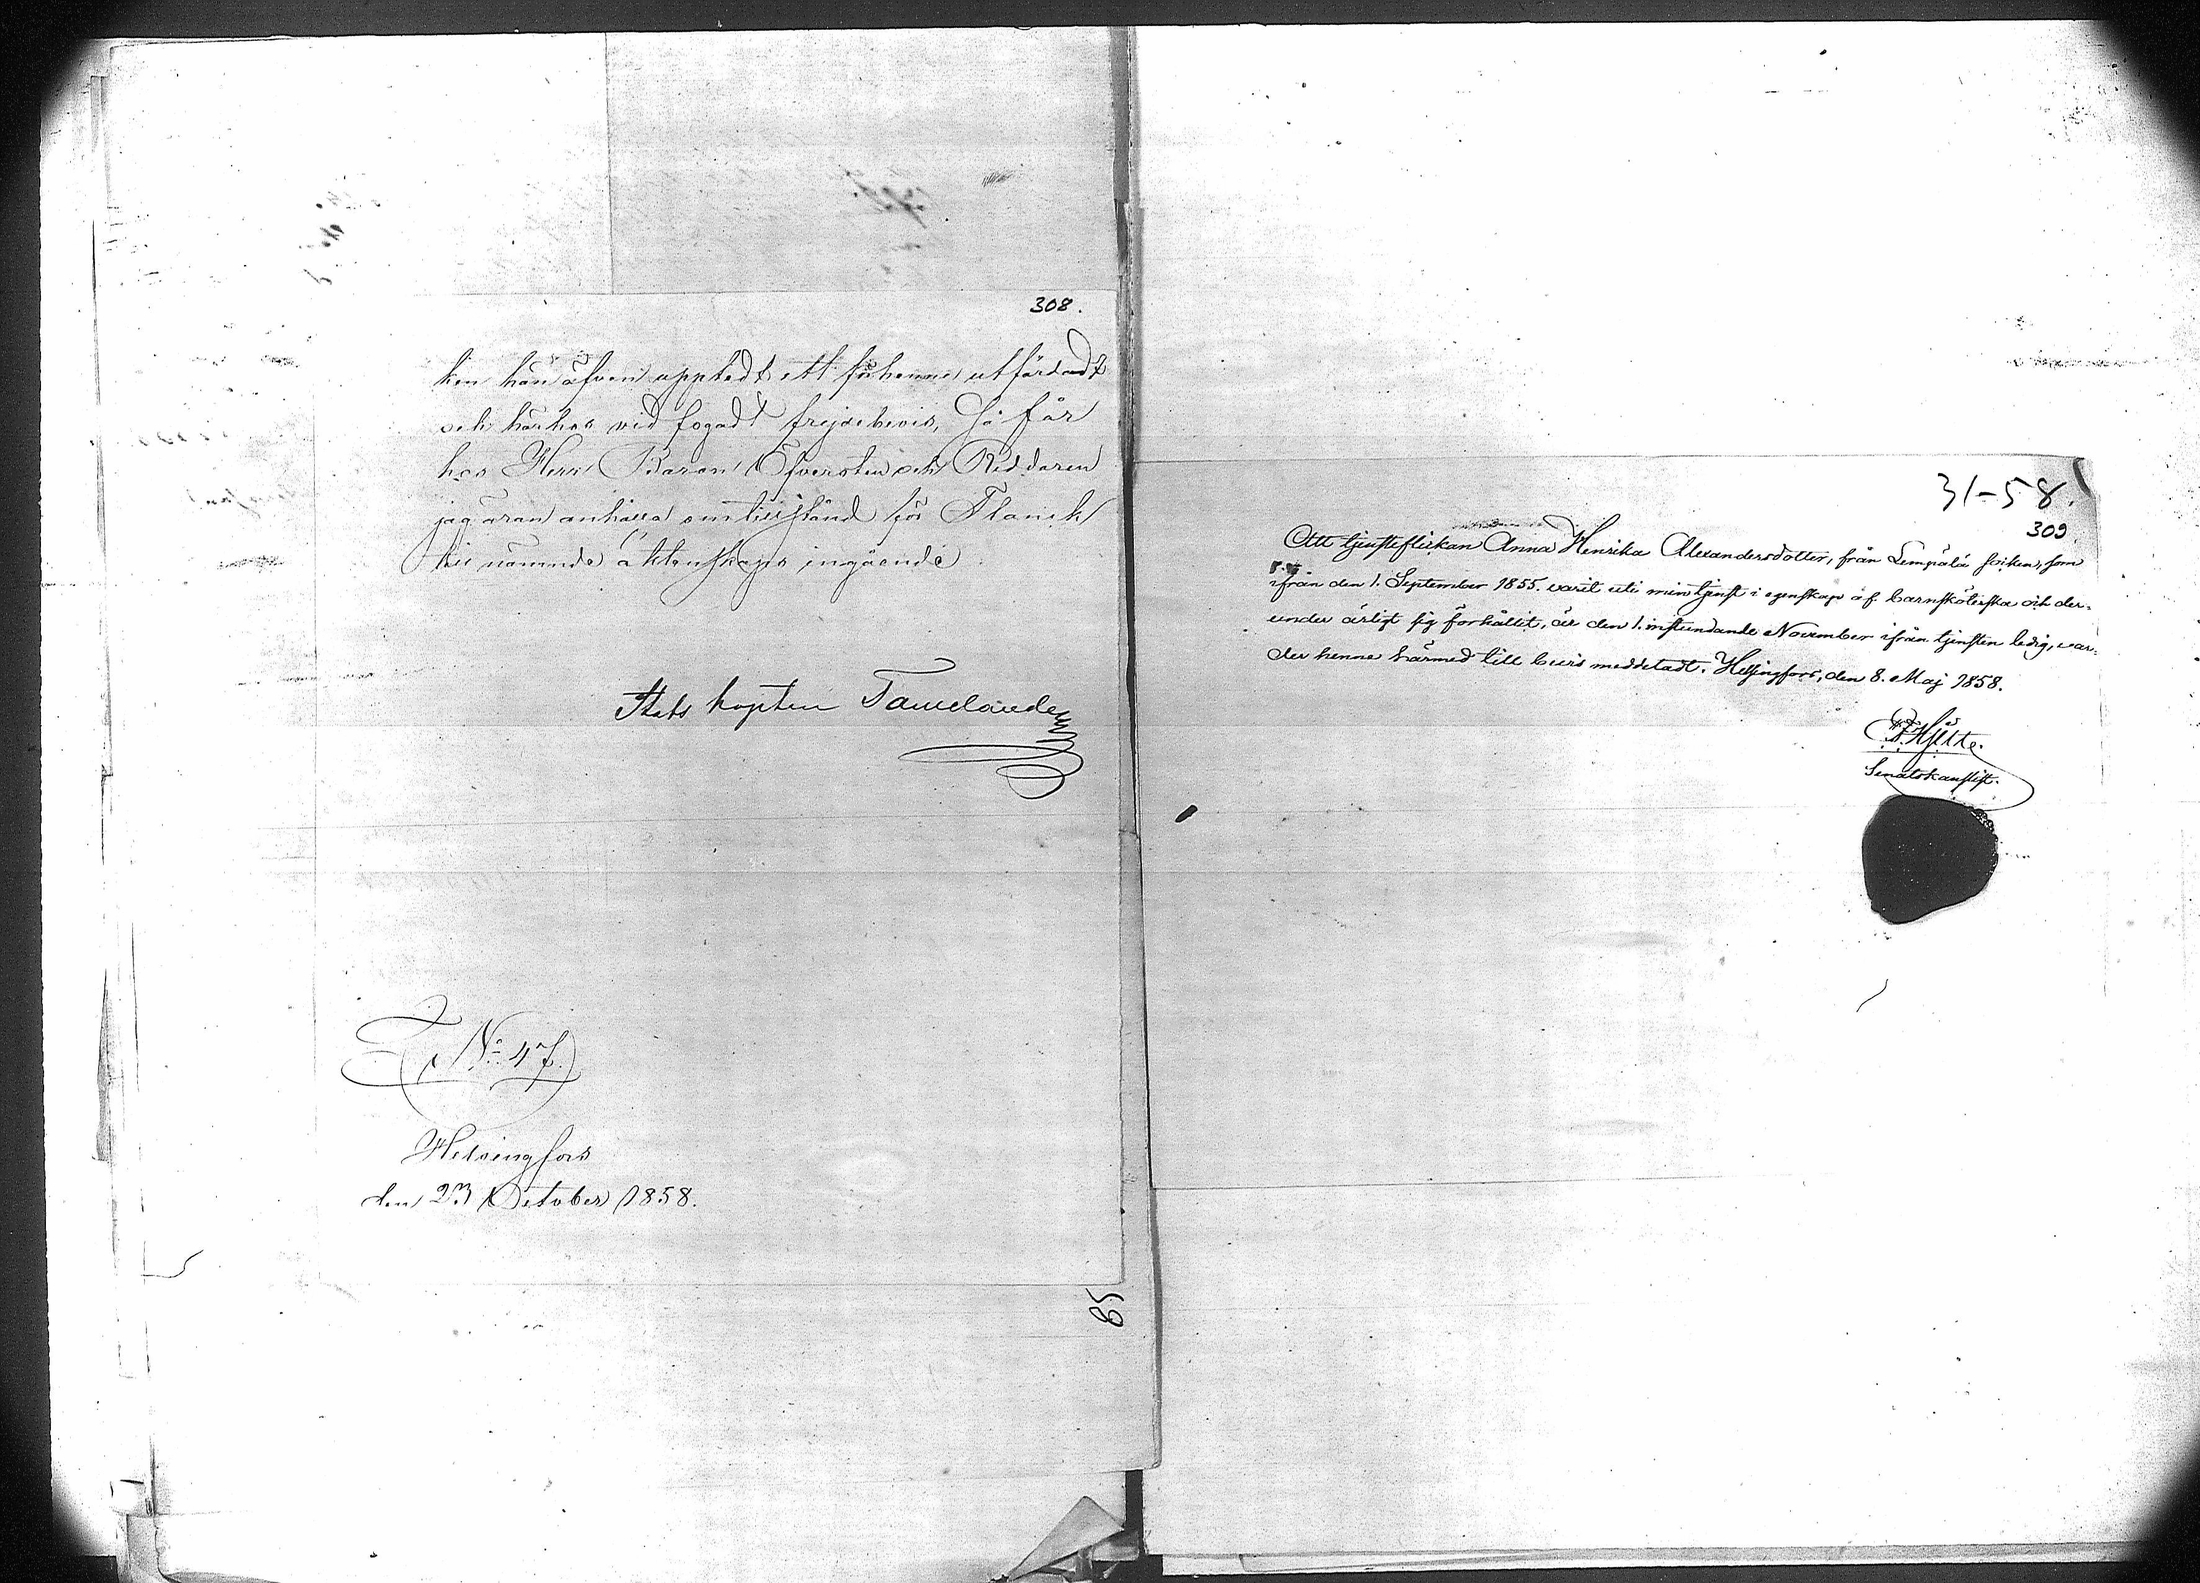 308.
ken han äfven upptedt ett för henne utfärdadt
och härhos vid fogadt frejdebevis, Så får
hos Herr Baron Öfversten och Riddaren
jag äran anhålla om tillstånd för Planck
till nämnde äktenskaps ingående
Stabs kapten Tawelander
No 47.
Helsingfors
den 23 October 1858.
85
31-58.
309.
Att tjensteflickan Anna Henrika Alexandersdotter, från Lempälä socken, som
ifrån den 1. September 1855. varit uti min tjenst i egenskap af barnsköterska och der-
under ärligt sig förhållit, är den 1. instundande November ifrån tjensten ledig, var-
der henne härmed till bevis meddeladt. Helsingfors, den 8. Maj 1858.
Hjelt.
Senatskanslist.